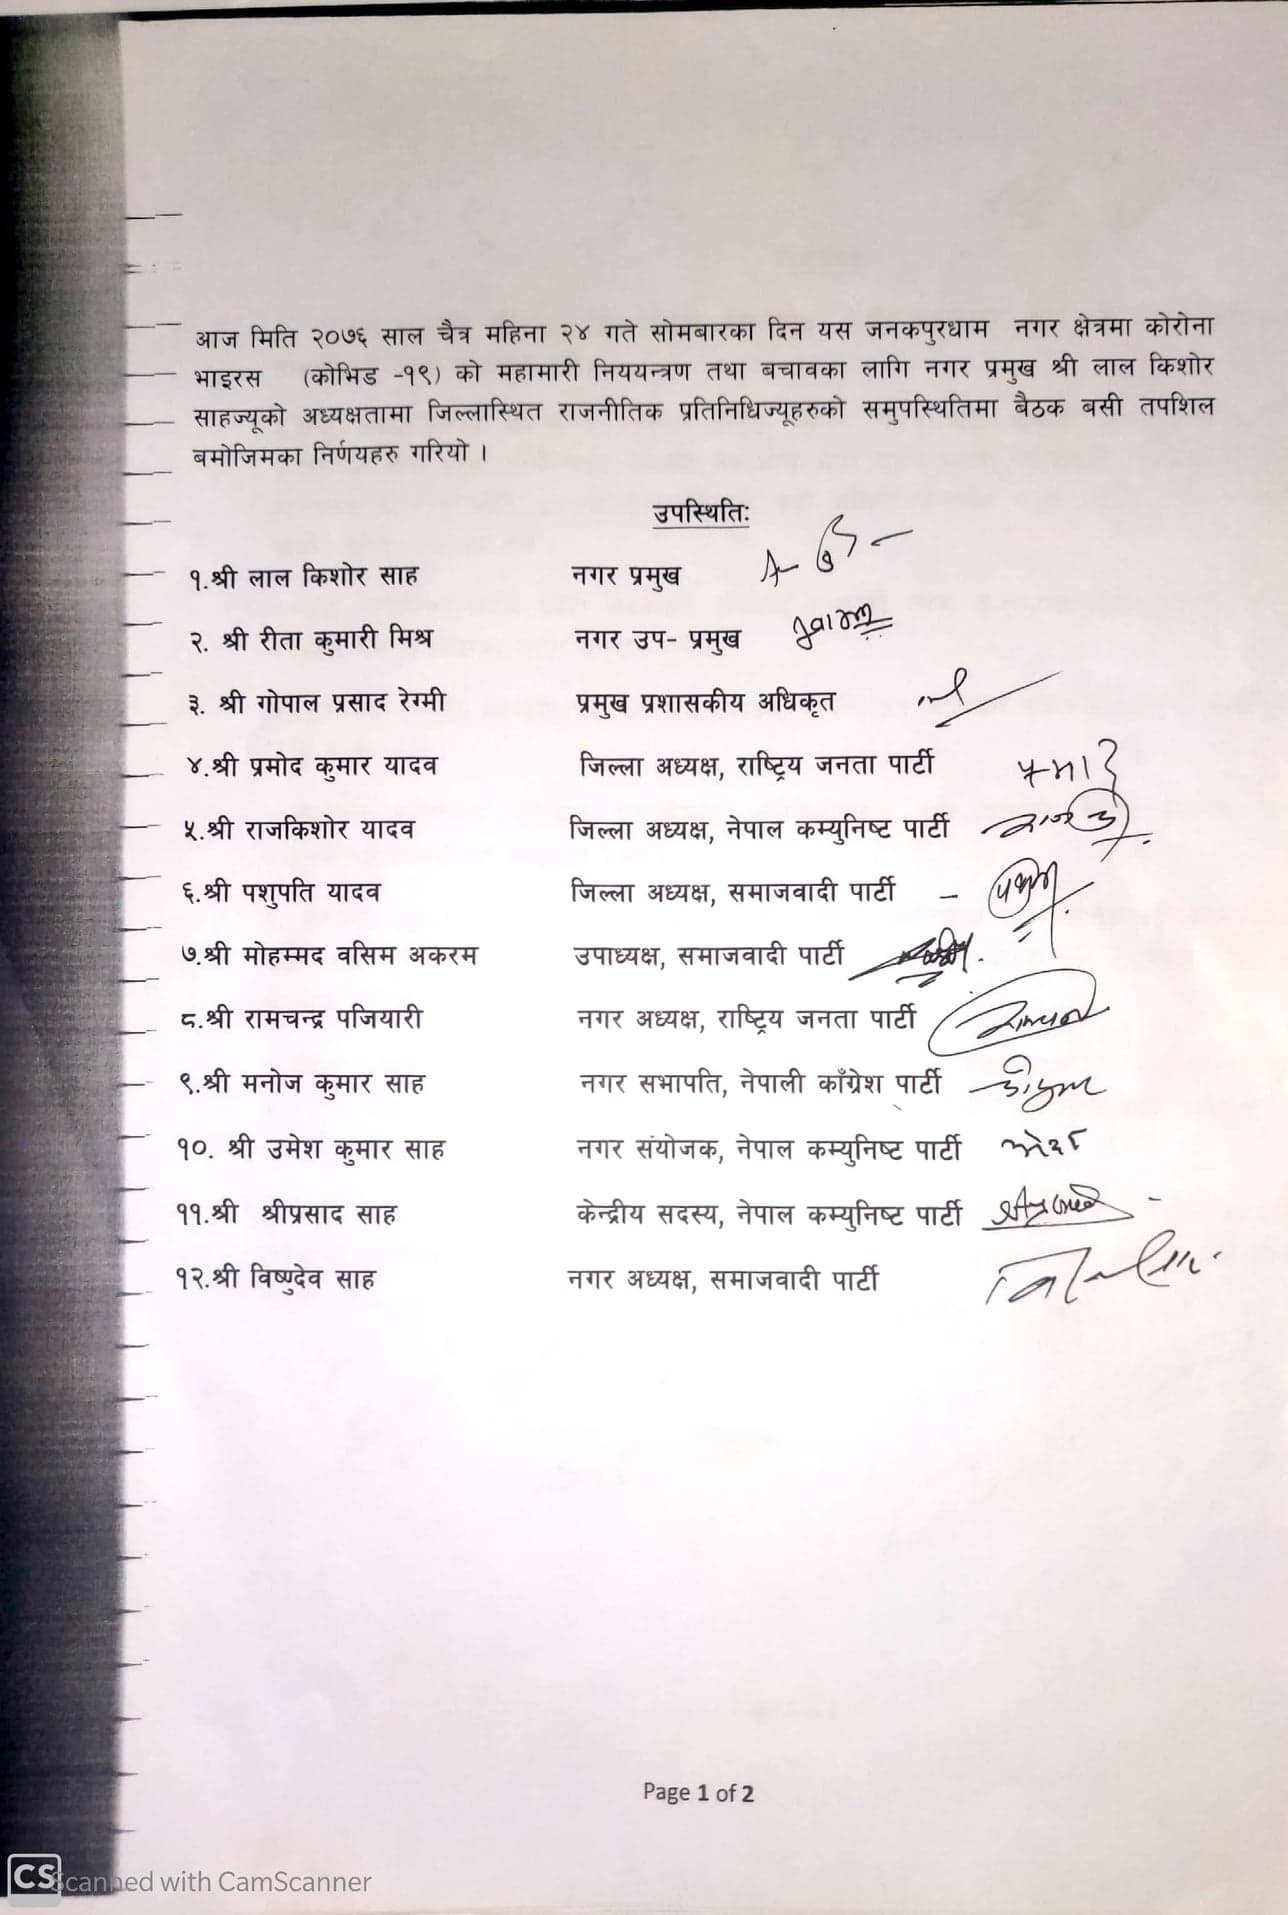 आज मिति २०७६ साल चैत्र महिना २४ गते सोमबारका दिन यस जनकपुरधाम नगर क्षेत्रमा कोरोना
भाइरस (कोभिड -१९) को महामारी निययन्त्रण तथा बचावका लागि नगर प्रमुख श्री लाल किशोर
साहज्यूको अध्यक्षतामा जिल्लास्थित राजनीतिक प्रतिनिधिज्यूहरुको समुपस्थितिमा बैठक बसी तपशिल
बमोजिमका निर्णयहरु गरियो ।
उपस्थितिः
१.श्री लाल किशोर साह नगर प्रमुख
२. श्री रीता कुमारी मिश्र नगर उप- प्रमुख
३. श्री गोपाल प्रसाद रेग्मी प्रमुख प्रशासकीय अधिकृत
४.श्री प्रमोद कुमार यादव जिल्ला अध्यक्ष, राष्ट्रिय जनता पार्टी
५.श्री राजकिशोर यादव जिल्ला अध्यक्ष, नेपाल कम्युनिष्ट पार्टी
६.श्री पशुपति यादव जिल्ला अध्यक्ष, समाजवादी पार्टी
७.श्री मोहम्मद वसिम अकरम उपाध्यक्ष, समाजवादी पार्टी
८.श्री रामचन्द्र पजियारी नगर अध्यक्ष, राष्ट्रिय जनता पार्टी
९.श्री मनोज कुमार साह नगर सभापति, नेपाली काँग्रेश पार्टी
१०. श्री उमेश कुमार साह नगर संयोजक, नेपाल कम्युनिष्ट पार्टी
११.श्री श्रीप्रसाद साह केन्द्रीय सदस्य, नेपाल कम्युनिष्ट पार्टी
१२.श्री विष्णुदेव साह नगर अध्यक्ष, समाजवादी पार्टी
Page 1 of 2
CS Scanned with CamScanner